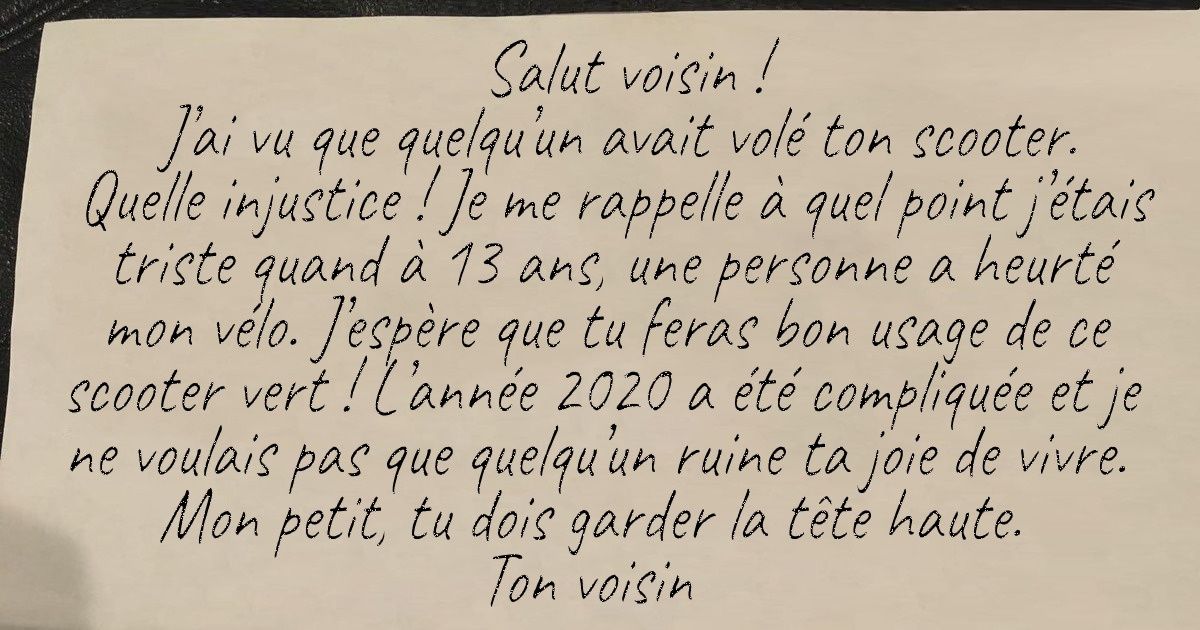 Salut voisin !
J'ai vu que quelqu'un avait volé ton scooter.
Quelle injustice ! Je me rappelle à quel point j'étais
triste quand à 13 ans, une personne a heurté
mon vélo. J'espère que tu feras bon usage de ce
scooter vert ! L'année 2020 a été compliquée et je
ne voulais pas que quelqu'un ruine ta joie de vivre.
Mon petit, tu dois garder la tête haute.
Ton voisin